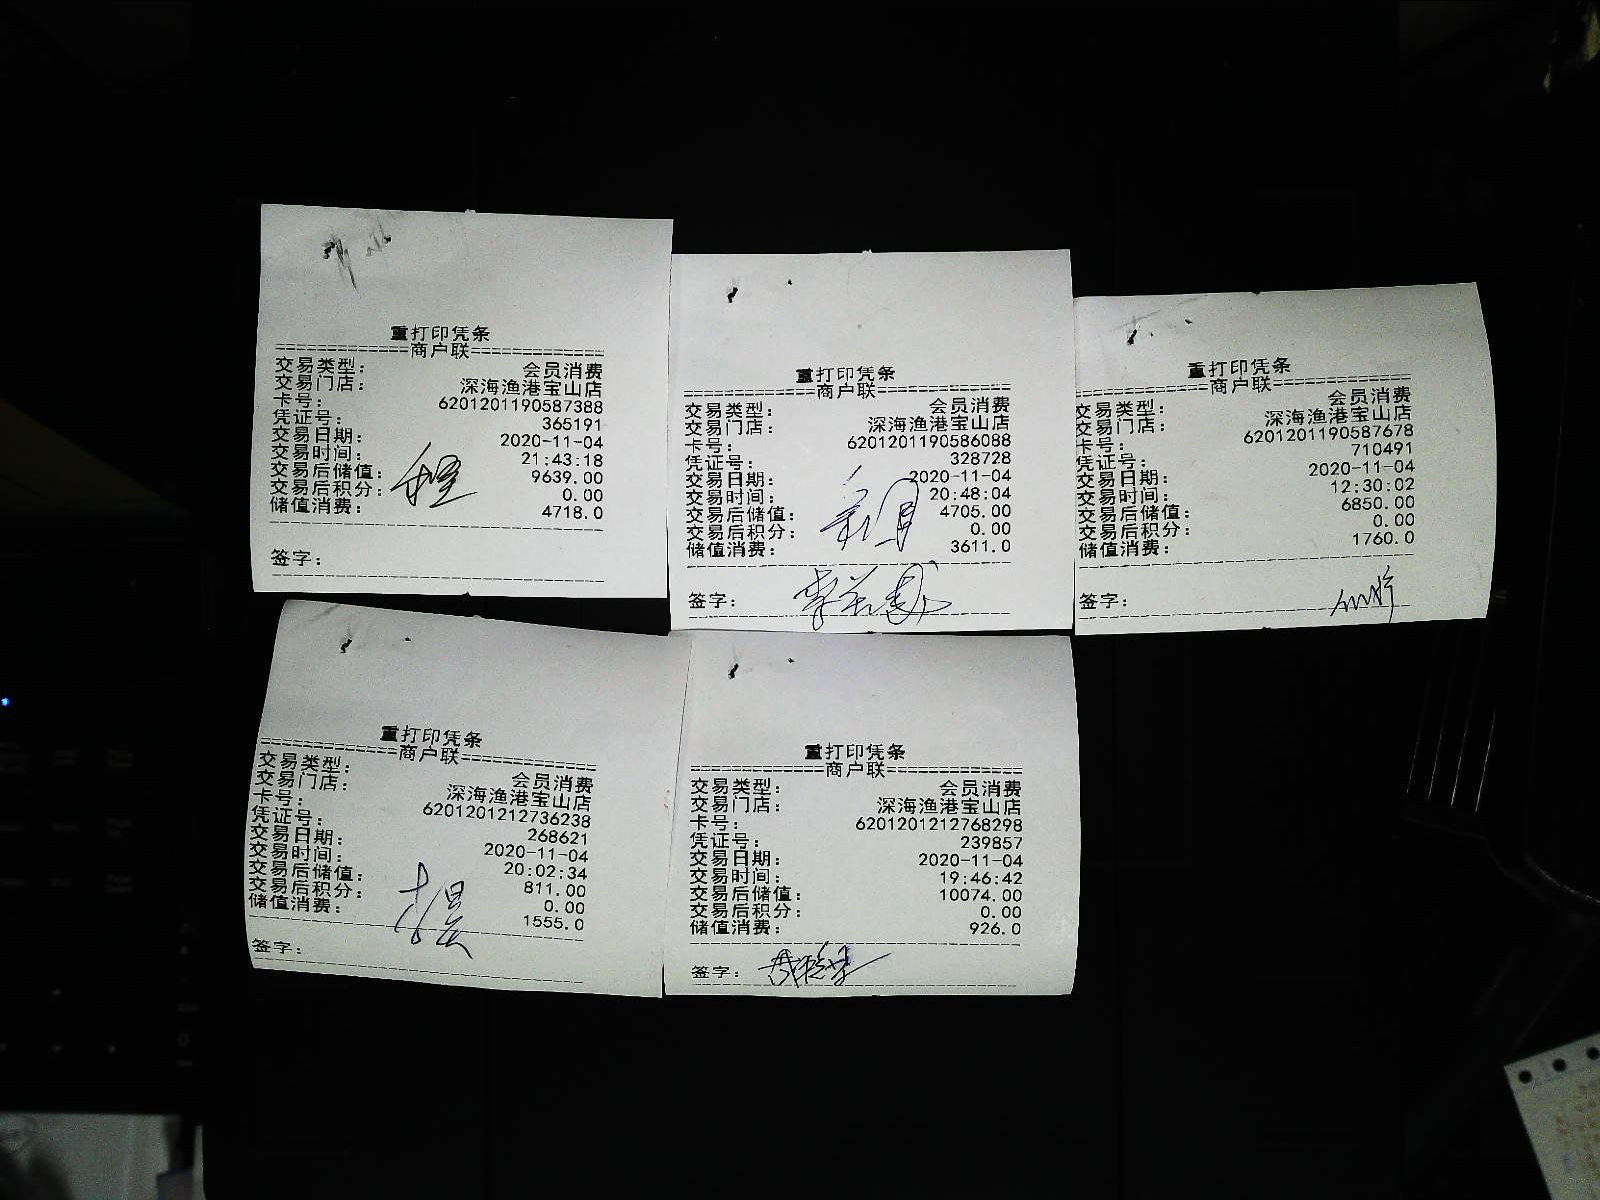 重打印凭条
===============商户联===============
交易类型： 会员消费
交易门店： 深海渔港宝山店
卡号： 6201201190587388
凭证号： 365191
交易日期： 2020-11-04
交易时间： 21:43:18
交易后储值： 9639.00
交易后积分： 0.00
储值消费： 4718.0
签字：
重打印凭条
===============商户联===============
交易类型： 会员消费
交易门店： 深海渔港宝山店
卡号： 6201201190586088
凭证号： 328728
交易日期： 2020-11-04
交易时间： 20:48:04
交易后储值： 4705.00
交易后积分： 0.00
储值消费： 3611.0
签字：
重打印凭条
===============商户联===============
交易类型： 会员消费
交易门店： 深海渔港宝山店
卡号： 6201201190587678
凭证号： 710491
交易日期： 2020-11-04
交易时间： 12:30:02
交易后储值： 6850.00
交易后积分： 0.00
储值消费： 1760.0
签字：
重打印凭条
===============商户联===============
交易类型： 会员消费
交易门店： 深海渔港宝山店
卡号： 6201201212736238
凭证号： 268621
交易日期： 2020-11-04
交易时间： 20:02:34
交易后储值： 811.00
交易后积分： 0.00
储值消费： 1555.0
签字：
重打印凭条
===============商户联===============
交易类型： 会员消费
交易门店： 深海渔港宝山店
卡号： 6201201212768298
凭证号： 239857
交易日期： 2020-11-04
交易时间： 19:46:42
交易后储值： 10074.00
交易后积分： 0.00
储值消费： 926.0
签字：